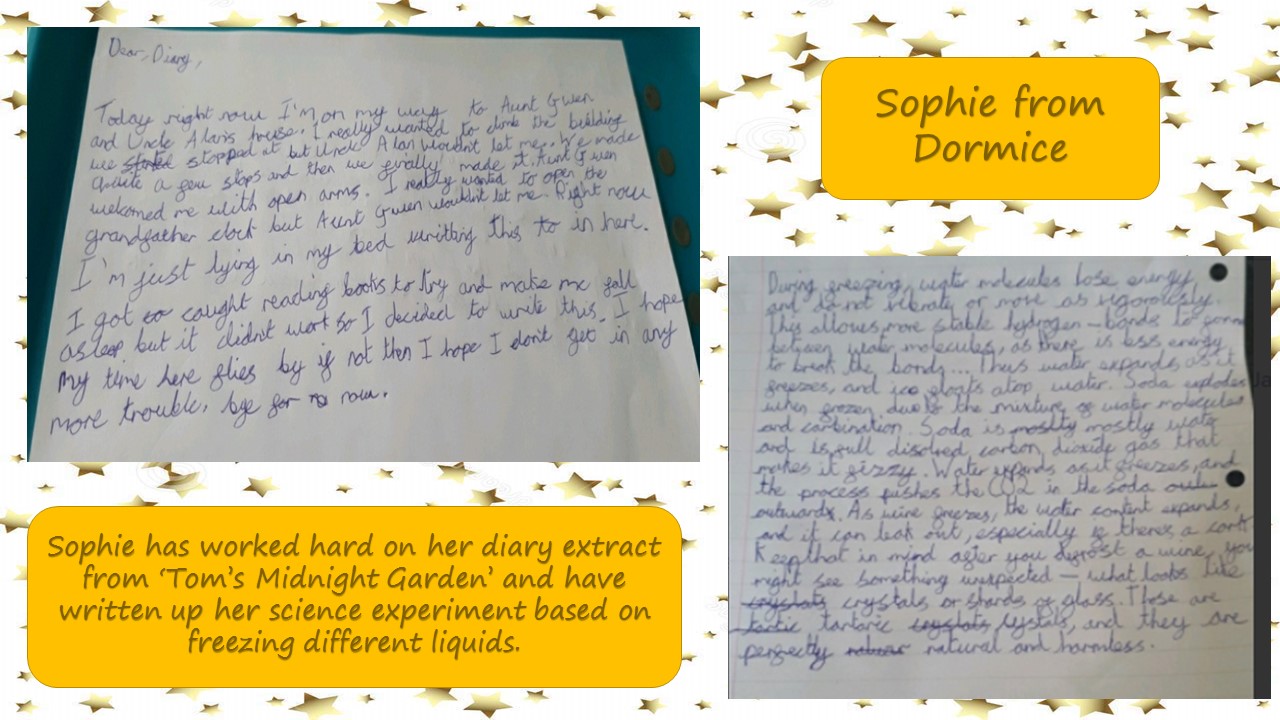 Dear, Diary,
Today right now I'm on my way to Aunt Gwen
and Uncle Alan's house. I really wanted to climb the building
we started stopped at but Uncle Alan wouldn't let me. We made
quite a few stops and then we finally made it. Aunt Gwen
welcomed me with open arms. I really wanted to open the
grandfather clock but Aunt Gwen wouldn't let me. Right now
I'm just lying in my bed writting this to in here.
I got caught reading books to try and make me fall
asleep but it didnt work so I decided to write this. I hope
my time here flies by if not then I hope I dont get in any
more trouble. bye for now.
Sophie from
Dormice
During freezing, water molecules lose energy
and do not vibrate or move as vigorously.
This allows more stable hydrogen - bonds to form
between water molecules, as there is less energy
to break the bonds... Thus water expands as it
freezes, and ice floats atop water. Soda explodes
when frozen due to the mixture of water molecules
and carbination. Soda is moslty mostly water
and is full disolved carbon dioxide gas that
makes it fizzy. Water expands as it freezes, and
the process pushes the CO2 in the soda
outwards. As wine freezes, the water content expands,
and it can leak out, especially if theres a cork
Keep that in mind after you defrost a wine, you
might see something unexpected — what looks like
crystals crystals or shards of glass. These are
tartic tartaric crystals, and they are
perfectly natural and harmless.
Sophie has worked hard on her diary extract
from ‘Tom’s Midnight Garden’ and have
written up her science experiment based on
freezing different liquids.